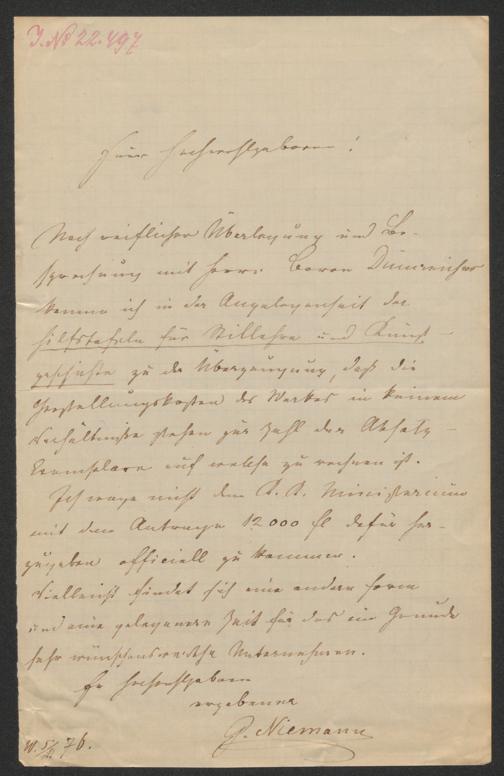 J. No 22.497
Euer Hochwohlgeboren!
Nach reiflicher Überlegung und Be-
sprechung mit Herrn Baron Dumreicher
komme ich in der Angelegenheit der
Hilfstafeln für Stillehre und Kunst-
geschichte zu der Überzeugung, daß die
Herstellungskosten des Werkes in keinem
Verhältniße stehen zur Zahl der Absatz-
Exemplare auf welche zu rechnen ist.
Ich wage nicht dem K. K. Ministerium
mit dem Antrage 12000 fl dafür her-
zugeben officiell zu kommen.
Vielleicht findet sich eine andere Form
und eine gelegenere Zeit für das im Grunde
sehr wünschenswerthe Unternehmen.
Ew Hochwohlgeboren
ergebener
G. Niemann
W. 5/III 76.